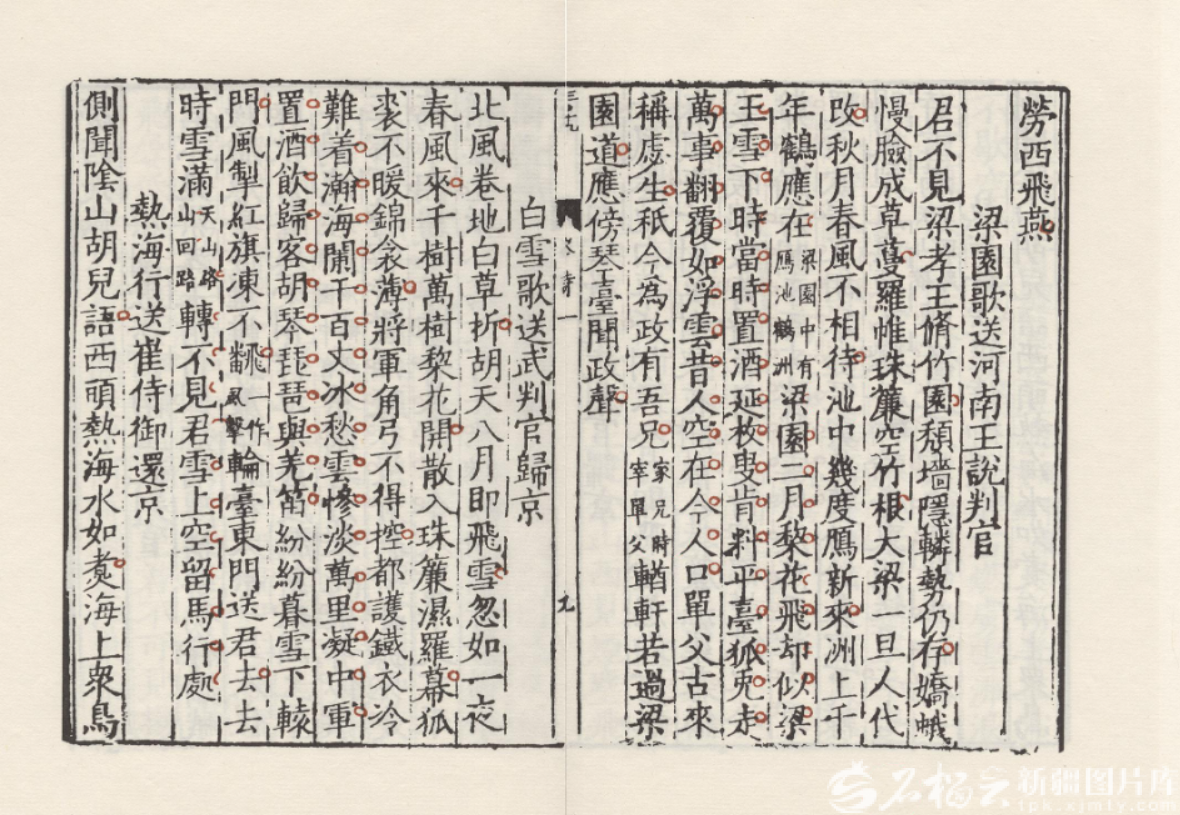 勞西飛燕
梁園歌送河南王說判官
君不見梁孝王脩竹園頹墻隱轔勢仍存嬌蛾
慢臉成草蔓羅帷珠簾空竹根大梁一旦人代
改秋月春風不相待池中幾度鴈新來洲上千
年鶴應在梁園中有鴈池鶴洲梁園二月梨花飛却似梁
王雪下時當時置酒延枚叟肯料平臺狐兎走
萬事翻覆如浮雲昔人空在今人口單父古來
稱虙生秖今為政有吾兄家兄時宰單父輶軒若過梁
園道應傍琴臺聞政聲
九
白雪歌送武判官歸京
北風卷地白草折胡天八月即飛雪忽如一夜
春風來千樹萬樹梨花開散入珠簾濕羅幕狐
裘不暖錦衾薄將軍角弓不得控都護鐵衣冷
難着瀚海闌干百丈冰愁雲慘淡萬里凝中軍
置酒飲歸客胡琴琵琶與羌笛紛紛暮雪下轅
門風掣紅旗凍不飜一作輪臺東門送君去去
時雪滿天山路山回路轉不見君雪上空留馬行處
熱海行送崔侍御還京
側聞陰山胡兒語西頭熱海水如煑海上衆鳥
石榴云 新疆图片库
tpk.xjmty.com